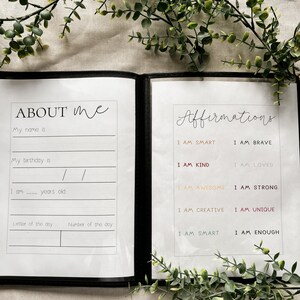 ABOUT me
My name is
My birthday is
/ /
I am ___ years old
Letter of the day
Number of the day
Affirmations
I AM SMART
I AM BRAVE
I AM KIND
I AM LOVED
I AM AWESOME
I AM STRONG
I AM CREATIVE
I AM UNIQUE
I AM SMART
I AM ENOUGH